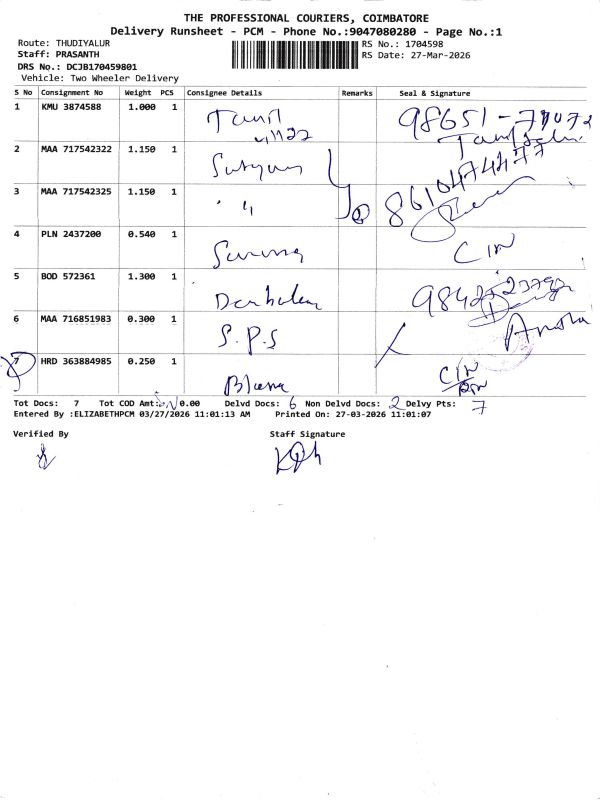 THE PROFESSIONAL COURIERS, COIMBATORE
Delivery Runsheet - PCM - Phone No.:9047080280 - Page No.:1
Route: THUDIYALUR
Staff: PRASANTH
DRS No.: DCJB170459801
Vehicle: Two Wheeler Delivery
RS No.: 1704598
RS Date: 27-Mar-2026
S No Consignment No Weight PCS Consignee Details Remarks Seal & Signature
1 KMU 3874588 1.000 1 Tamil
2 MAA 717542322 1.150 1
3 MAA 717542325 1.150 1 " 8610474477
4 PLN 2437200 0.540 1
5 BOD 572361 1.300 1
6 MAA 716851983 0.300 1 S.P.S
7 HRD 363884985 0.250 1
Tot Docs: 7 Tot COD Amt: 0.00 Delvd Docs: 6 Non Delvd Docs: 2 Delvy Pts: 7
Entered By :ELIZABETHPCM 03/27/2026 11:01:13 AM Printed On: 27-03-2026 11:01:07
Verified By Staff Signature